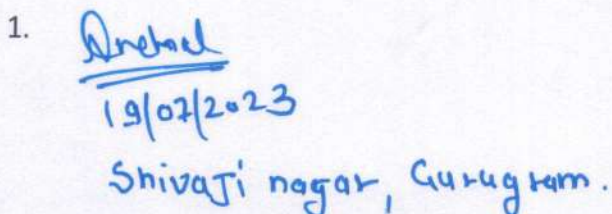 1.
19/07/2023
Shivaji nagar, Gurugram.